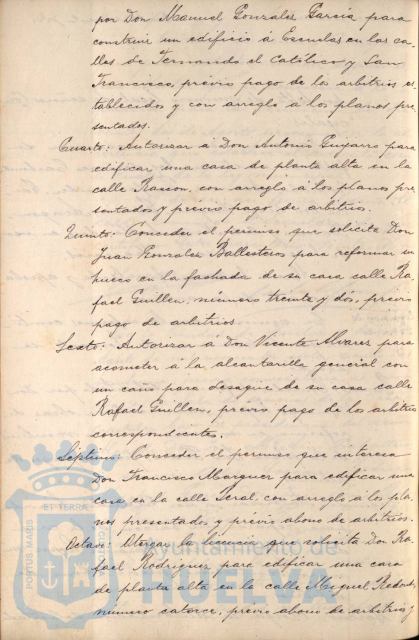 por Don Manuel Gonzalez Garcia para
construir un edificio á Escuelas en las ca
lles de Fernando el Católico y San
Francisco, prévio pago de los arbitrios es
tablecidos y con arreglo á los planos pre
sentados.
Cuarto: Autorizar á Don Antonio para
edificar una casa de planta alta en la
calle Rascon, con arreglo á los planos pre
sentados y prévio pago de arbitrio.
Quinto: Conceder el permiso que solicita Don
Juan Gonzalez Ballesteros para reformar un
hueco en la fachada de su casa calle Ra
fael Guillen, número treinta y dos, prévio
pago de arbitrios
Sexto: Autorizar á Don Vicente Alvarez para
acometer á la alcantarilla general con
un caño para desague de su casa calle
Rafael Guillen, prévio pago de los arbitrios
correspondientes.
Séptimo: Conceder el permiso que interesa
Don Francisco Marquez para edificar una
casa en la calle con arreglo á los pla
nos presentados y prévio abono de arbitrios.
Octavo: Otorgar la licencia que solicita Don Ra
fael Rodriguez para edificar una casa
de planta alta en la calle Miguel Redondo,
número catorce, prévio abono de arbitrios y
PORTUS MARIS ET TERRÆ CUSTODIA
Ayuntamiento de
HUELVA